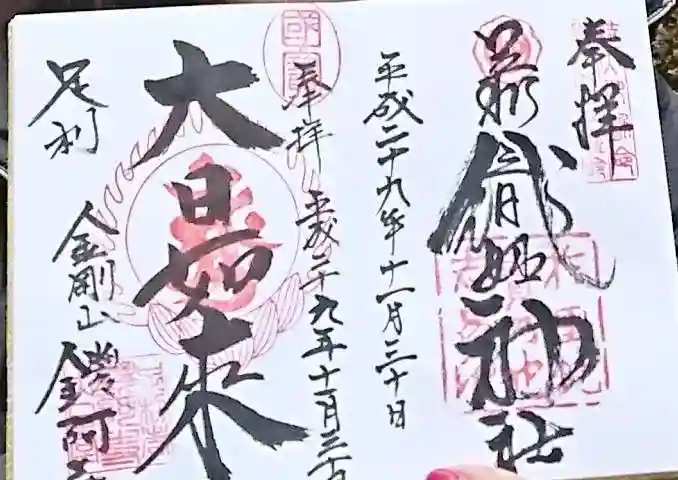 奉拝
足利織姫神社
平成二十九年十一月三十日
奉拝 平成二十九年十一月三十日
國寶
大日如来
足利
金剛山 鑁阿寺